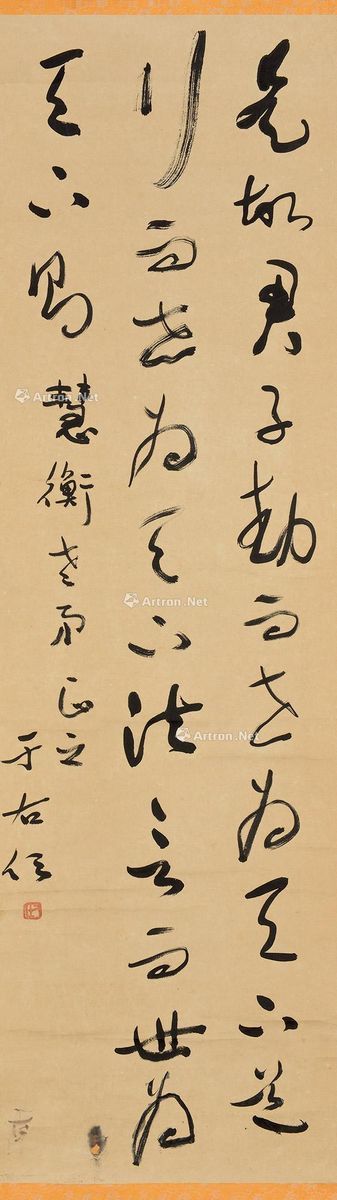 是故君子動而世為天下道
行而世為天下法言而世為
天下則 慧衡老弟正之
于右任
Artron.Net
Artron.Net
Artron.Net
Artron.Net